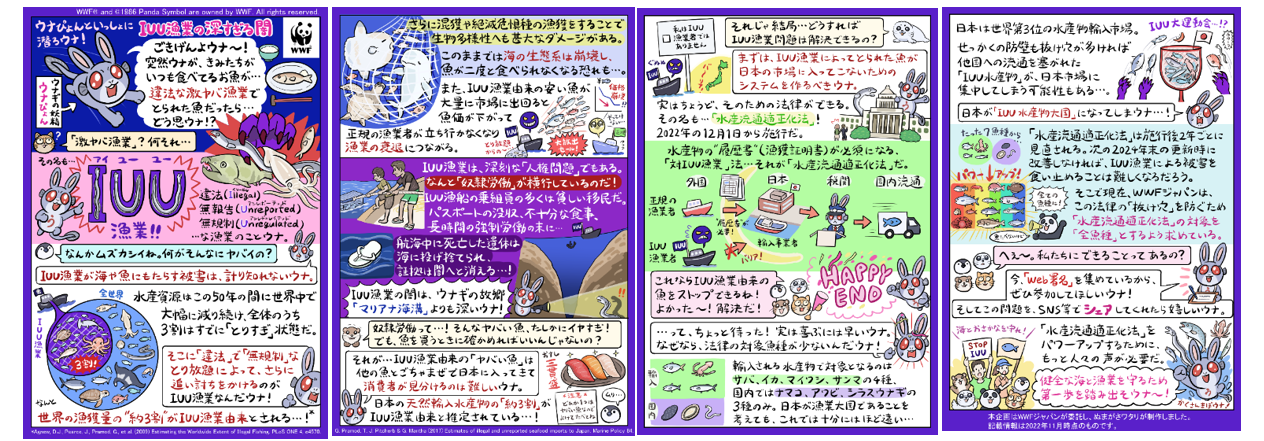 WWF® and ©1986 Panda Symbol are owned by WWF. All rights reserved.
ウナぴょんといっしょに
潜ろウナ！
IUU漁業の深すぎる闇
WWF
ごきげんよウナ〜！
突然ウナが、きみたちが
いつも食べてるお魚が…
違法な激ヤバ漁業で
とられた魚だったら…
どう思ウナ!?
ウナギの妖精
ウナぴょん
「激ヤバ漁業」？何それ…
その名も…
アイ ユー ユー
IUU
漁業!!
違法(Illegal)
無報告(Unreported)
無規制(Unregulated)
…な漁業のことウナ。
なんかムズカシイね。何がそんなにヤバイの？
IUU漁業が海や魚にもたらす被害は、計り知れないウナ。
全世界
IUU漁業
3割！
水産資源はこの50年の間に世界中で
大幅に減り続け、全体のうち
3割はすでに「とりすぎ」状態だ。
そこに「違法」で「無規制」な
とり放題によって、さらに
追い討ちをかけるのが
IUU漁業なんだウナ！
世界の漁獲量の“約3割”がIUU漁業由来とされる…！*
*Agnew, D.J., Pearce, J., Pramod, G., et al. (2009) Estimating the Worldwide Extent of Illegal Fishing. PLoS ONE 4, e4570.
さらに混獲や絶滅危惧種の漁獲をすることで
生物多様性へも甚大なダメージがある。
このままでは海の生態系は崩壊し、
魚が二度と食べられなくなる恐れも…。
また、IUU漁業由来の安い魚が
大量に市場に出回ると
魚価が下がって
正規の漁業者が立ち行かなくなり
漁業の衰退につながる。
IUU漁業は、深刻な「人権問題」でもある。
なんと「奴隷労働」が横行しているのだ！
IUU漁船の乗組員の多くは貧しい移民だ。
パスポートの没収、不十分な食事、
長時間の強制労働の末に…
航海中に死亡した遺体は
海に投げ捨てられ、
証拠は闇へと消える…！
IUU漁業の闇は、ウナギの故郷
「マリアナ海溝」よりも深いウナ！
奴隷労働って…！そんなヤバい魚、たしかにイヤすぎ！
でも、魚を買うときに確かめればいいんじゃないの？
それが…IUU漁業由来の「ヤバい魚」は
他の魚とごちゃまぜで日本に入ってきて
消費者が見分けるのは難しいウナ。
日本の天然輸入水産物の“約3割”が
IUU漁業由来と推定されている…！
G. Pramod, T. J. Pitcher & G. Mantha (2017) Estimates of illegal and unreported seafood imports to Japan. Marine Policy 84.
私はIUU
漁業者では
ありません
それじゃ結局…どうすれば
IUU漁業問題は解決できるの？
まずは、IUU漁業によってとられた魚が
日本の市場に入ってこないための
システムを作るべきウナ。
実はちょうど、そのための法律ができる。
その名も…「水産流通適正化法」！
2022年の12月1日から施行だ。
水産物の「履歴書」(漁獲証明書)が必須になる、
「対IUU漁業」法…それが「水産流通適正化法」だ。
外国
日本
税関
国内流通
正規の
漁業者
IUU
漁業者
IUU
輸入事業者
バリア！
これならIUU漁業由来の
魚をストップできるね！
よかった〜！解決だ！
HAPPY
END
…って、ちょっと待った！実は喜ぶには早いウナ。
なぜなら、法律の対象魚種が少ないんだウナ！
輸入
国内
輸入する水産物で対象となるのは
サバ、イカ、マイワシ、サンマの4種、
国内ではナマコ、アワビ、シラスウナギの
3種のみ。日本が漁業大国であることを
考えても、これでは十分にはほど遠い…
日本は世界第3位の水産物輸入市場。
せっかくの防壁も抜け穴が多ければ
他国への流通を塞がれた
「IUU水産物」が、日本市場に
集中してしまう可能性もある…。
IUU大運動会…!?
日本が「IUU水産物大国」になってしまウナ…！
たった7魚種から
パワーアップ！
全ての
魚種に！
「水産流通適正化法」は施行後2年ごとに
見直される。次の2024年末の更新時に
改善しなければ、IUU漁業による被害を
食い止めることは難しくなるだろう。
そこで現在、WWFジャパンは、
この法律の「抜け穴」を防ぐため
「水産流通適正化法」の対象を
「全魚種」とするよう求めている。
へぇ〜。私たちにできることってあるの？
今、「Web署名」を集めているから、
ぜひ参加してほしいウナ！
そしてこの問題を、SNS等でシェアしてくれたら嬉しいウナ。
海とおさかなを守れ！
STOP
IUU
「水産流通適正化法」を
パワーアップするために、
もっと人々の声が必要だ。
健全な海と漁業を守るため
第一歩を踏み出そウナ〜！
本企画はWWFジャパンが委託し、ぬまがさワタリが制作しました。
記載情報は2022年11月時点のものです。